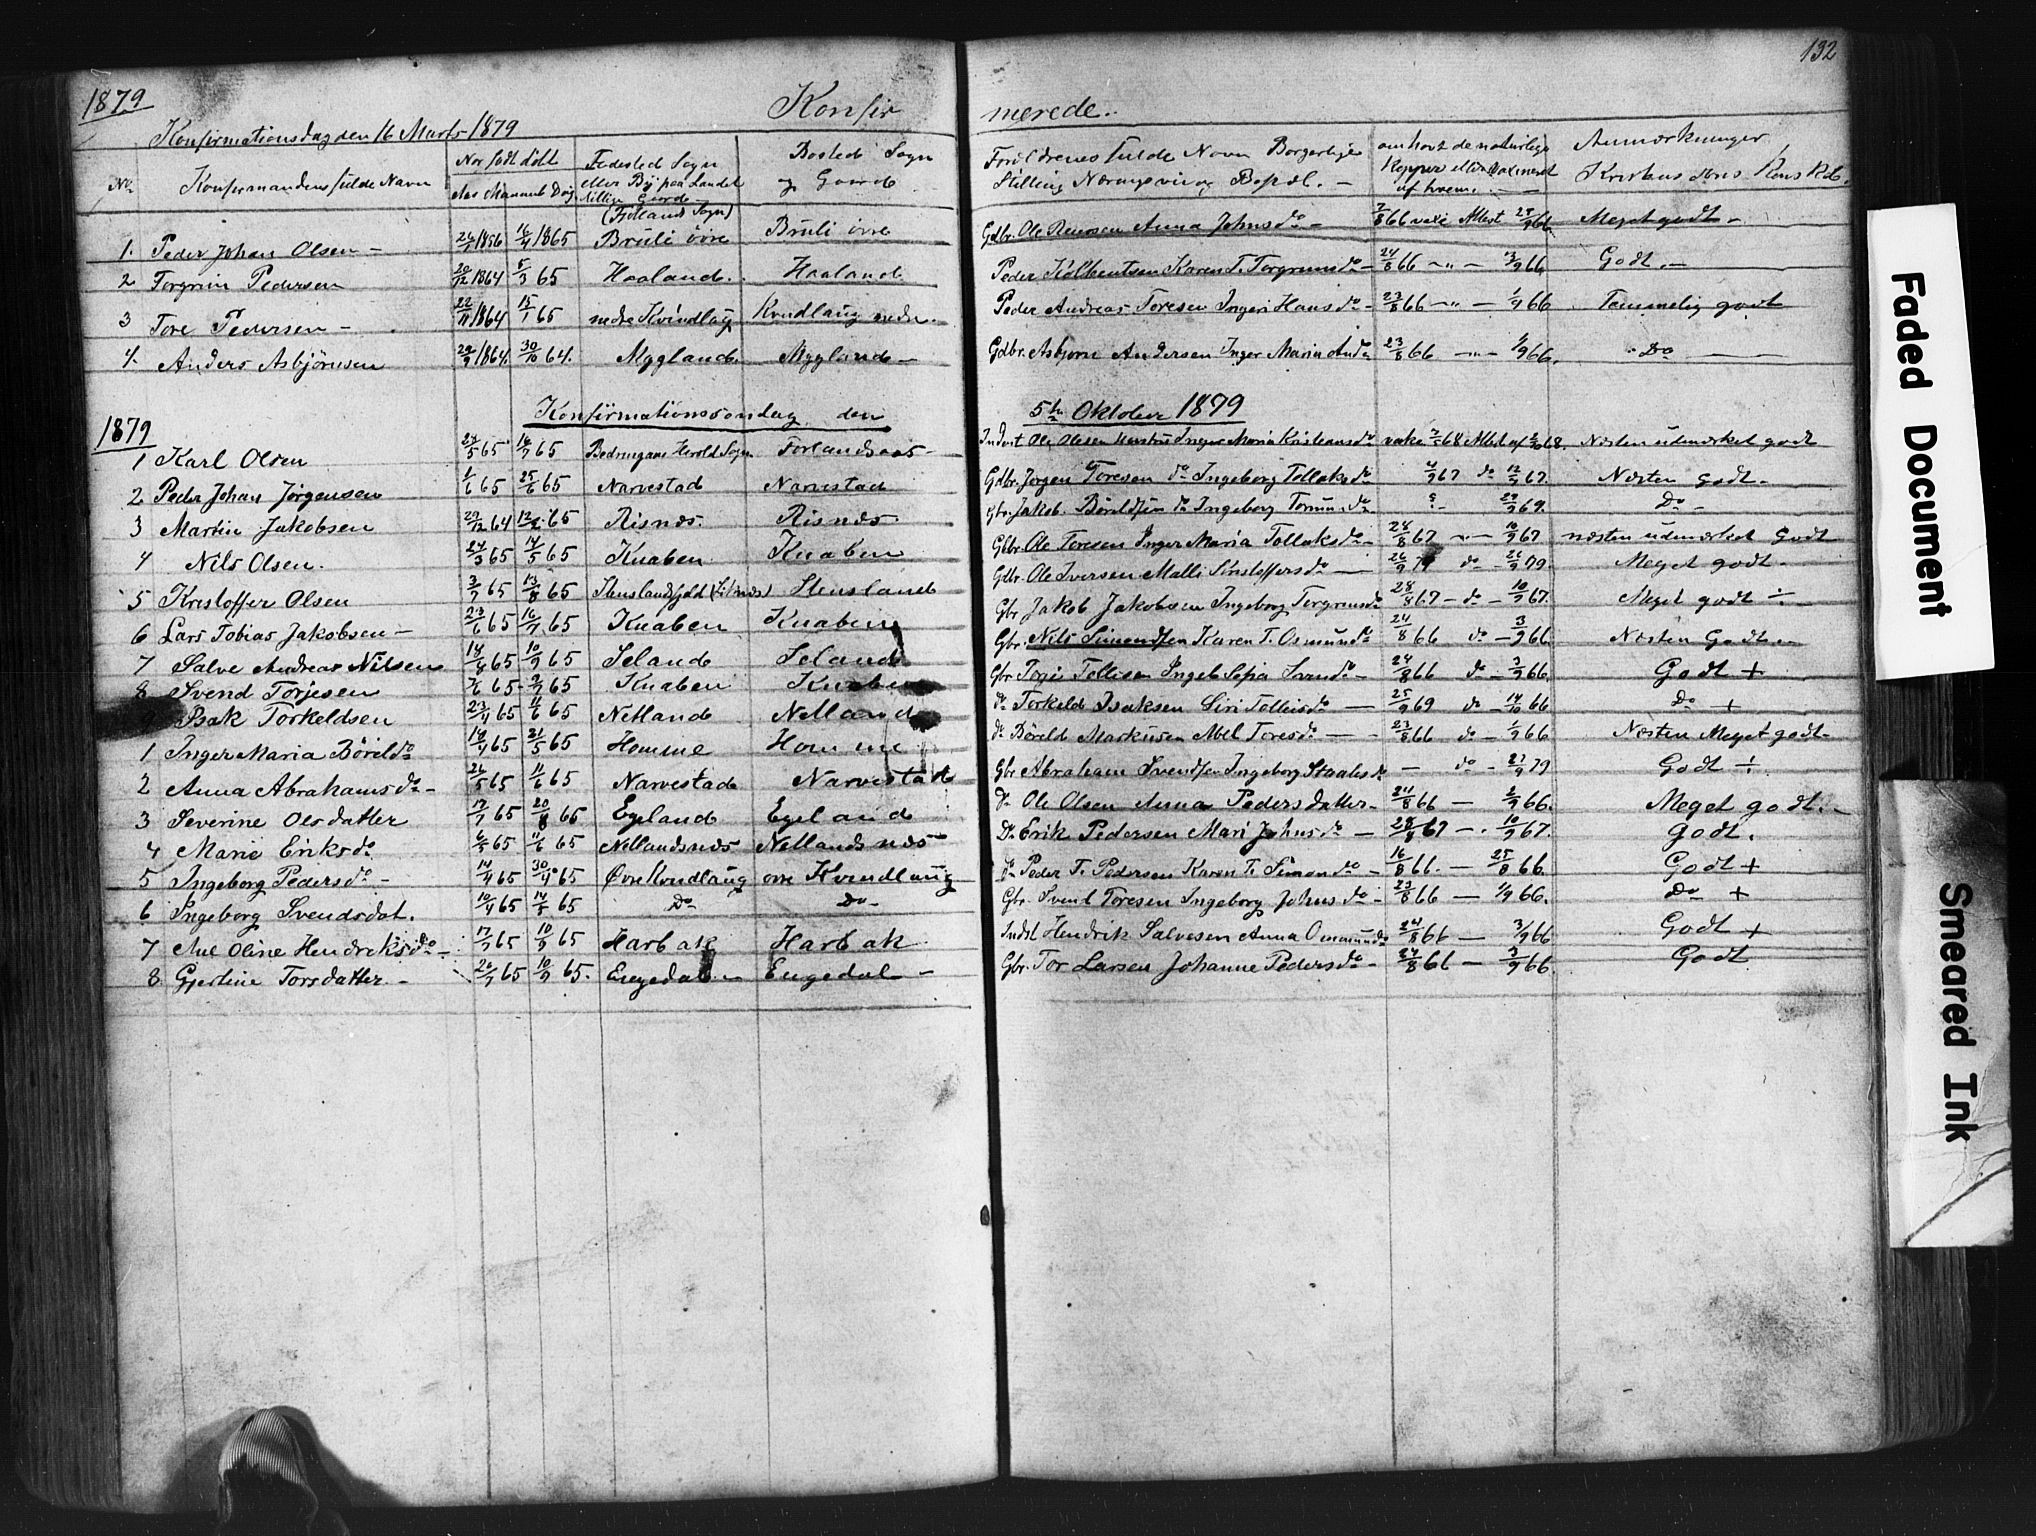 1879
Konfir merede.
132
Konfirmationsdag den 16 Marts 1879
No. Konfirmandens fulde Navn
Naar født døbt
Aar Maaned Dag
Fødested Sogn eller By paa Landet tillige Gaard
(Fjotland Sogn)
Bosted Sogn og Gaard
Forældrenes fulde Navn Borgerlige Stilling Næringsvei og Bopæl. —
om havt de naturlige Kopper eller vaxineret af hvem. —
Anmærkninger Kristendoms Kundskab.
1. Peder Johan Olsen — 1865 Bruli övre Bruli övre Gdbr. Ole Reiersen Anna Johnsdo — 7/8 66 vaxi Attest 66 Meget godt —
2 Torgrim Pedersen 20/12 1864 5/3 65 Haaland. Haaland Peder Kolbentsen Karen T. Torgrimsdo — 24/8 66 — " — 3/9 66 Godt. —
3 Tore Pedersen — 22/11 1864 15/1 65 nedre Kvindlaug Kvndlaug nedr. Peder Andreas Toresen Ingeri Hansdo — 23/8 66 — " — 1/9 66 Temmelig godt
4. Anders Asbjörnsen 29/9 1864. 30/10 64. Mygland. Mygland — Gdbr. Asbjorn Andersen Inger Maria And. 23/8 66 — " — 1/9 66. Do —
Konfirmationssondag den 5te Oktober 1879
1879
1 Karl Olsen 24/5 65 16/7 65 Forlandsaas — Inderst Ole Olsen Inger Maria Kristiansdo Næsten udmærket godt
2 Peder Johan Jørgensen 1/6 65 25/6 65 Narvestad Narvestad Gdbr. Jørgen Toresen do Ingeborg Tollaksdo 67 do 12/9 67. Næsten Godt.
3 Martin Jakobsen 29/12 64 65 Risnæs. Risnæs Gbr. Jakob. Böreldsen do Ingeborg ? — 69. Do —
4 Nils Olsen. 24/3 65 14/5 65 Knaben Knaben Gbr. Ole Toresen Inger Maria Tollaksdo — 28/8 67 — " — 10/9 67 næsten udmærket Godt
5 Kristoffer Olsen 3/7 65 13/8 65 Stensland Gdbr. Ole Iversen Malli Kristoffersdo — 26/9 79 do — 79. Meget godt.
6 Lars Tobias Jakobsen — 23/6 65 16/7 65 Knaben Knaben Gbr Jakob Jakobsen Ingeborg Torgrimsdo 28/8 67 — do — 10/9 67. Meget godt ÷
7 Salve Andreas Nilsen 18/8 65 10/9 65 Seland Seland Gbr. Nils Simondsen Karen T. Osmundsdo 24/8 66 do — 3/9 66 Næsten Godt. —
8 Svend Torjesen 65 — 65 Knaben Knaben Gbr Torjus Tollisen 24/8 66 do — 3/9 66. Godt +
9 Isak Torkeldsen 23/4 65 11/6 65 Netland Netland do Torkeld Isaksen Siri Tolleisdo — 25/9 69 do — 14/10 66 Do +
1 Inger Maria Böreldo 14/4 65 21/5 65 Homme Homme do Böreld Markusen Abel Toresdo — 23/8 66 do — 1/9 66 Næsten Meget godt —
2 Anna Abrahamsdo — 26/5 65 11/6 65 Narvestad Narvestad Gbr Abraham Svendsen Ingeborg Staalesdo — do — 27/9 79 Godt ÷
3 Severine Olsdatter 17/7 65 20/8 65 Egeland Egeland do Ole Olsen Anna Pedersdatter — 24/8 66 — 66. Meget godt. —
4 Marie Eriksdo 65 11/6 65 Netlandsnæs Netlandsnæs Do Erik Pedersen Mari Johnsdo — 28/8 67 — 10/9 67. Godt.
5 Ingeborg Pedersdo — 14/4 65 30/4 65 Øvre Kvndlaug ovre Kvindlaug do Peder T. Pedersen Karen T. Simonsdo — 16/8 66. — 25/8 66. Godt +
6 Ingeborg Svendsdat. 10/4 65 14/5 65 Do — Do — Gbr. Svend Toresen Ingeborg Johnsdo — 23/8 66 — 1/9 66. Do +
7 Ane Oline Hendriksdo — 17/7 65 10/9 65 Harbak Harbak Indst Hendrik Salvesen Anna Ommundsdo 24/8 66 — 3/9 66 Godt +
8 Gjertine Torsdatter. — 26/7 65 10/9 65. Engedal — Engedal — Gbr. Tor Larsen Johanne Pedersdo — 24/8 66 — 3/9 66. Godt
Faded Document
Smeared Ink